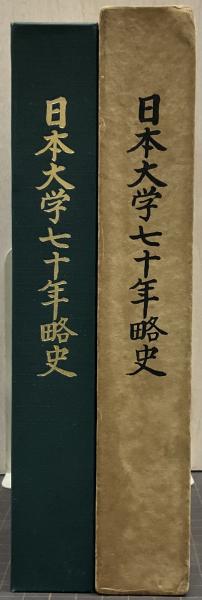 日本大学七十年略史
日本大学七十年略史